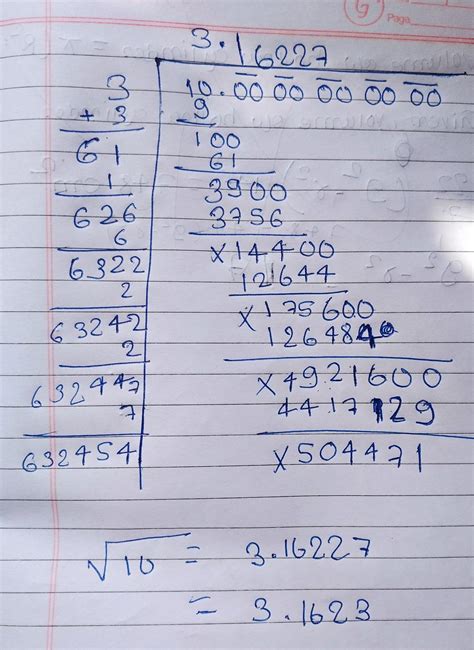 Page
3.16227
3 10.00 00 00 00 00
+ 3 9
61 100
1 61
626 3900
6 3756
6322 ×14400
2 12644
63242 ×175600
2 126484
632447 ×4921600
7 4417129
632454 ×504471
√10 = 3.16227
= 3.1623